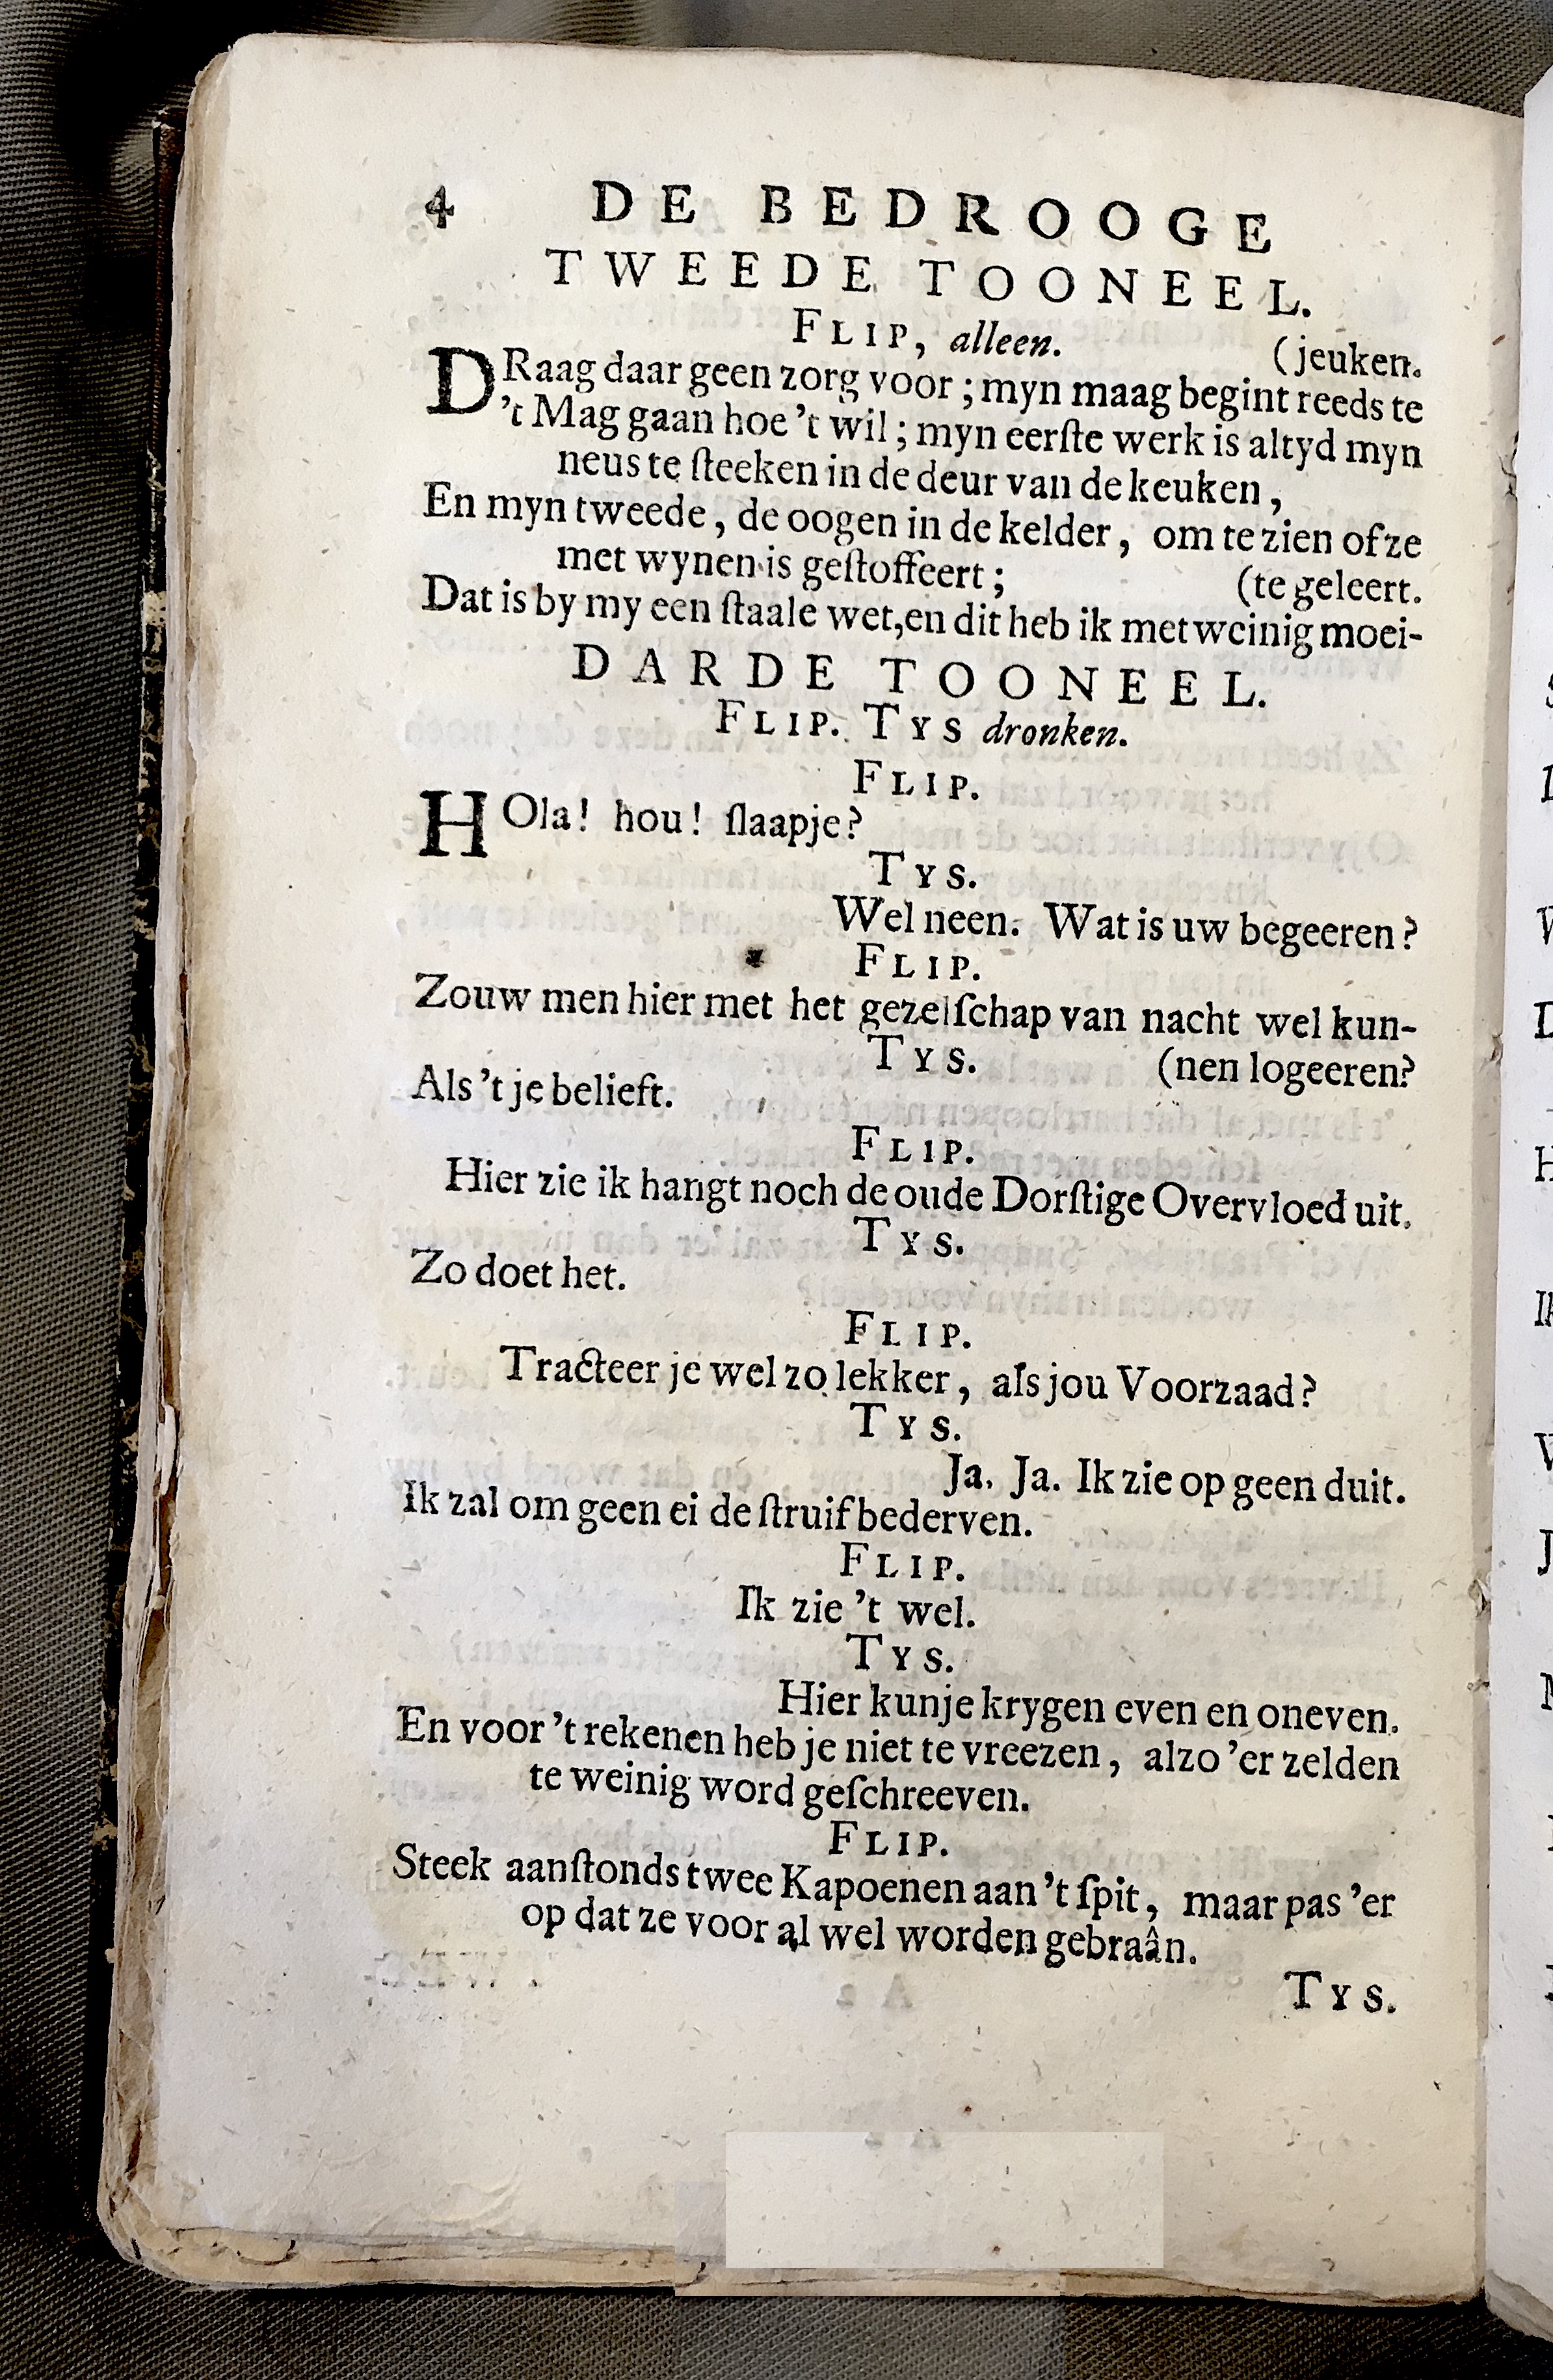 4 DE BEDROOGE
TWEEDE TOONEEL.
FLIP, alleen. (jeuken.
DRaag daar geen zorg voor; myn maag begint reeds te
't Mag gaan hoe 't wil; myn eerſte werk is altyd myn
neus te ſteeken in de deur van de keuken,
En myn tweede, de oogen in de kelder, om te zien of ze
met wynen is geſtoffeert; (te geleert.
Dat is by my een ſtaale wet, en dit heb ik met weinig moei-
DARDE TOONEEL.
FLIP. TYS dronken.
FLIP.
HOla! hou! ſlaapje?
TYS.
Wel neen. Wat is uw begeeren?
FLIP.
Zouw men hier met het gezelſchap van nacht wel kun-
TYS. (nen logeeren?
Als 't je belieft.
FLIP.
Hier zie ik hangt noch de oude Dorſtige Overvloed uit.
TYS.
Zo doet het.
FLIP.
Tracteer je wel zo lekker, als jou Voorzaad?
TYS.
Ja. Ja. Ik zie op geen duit.
Ik zal om geen ei de ſtruif bederven.
FLIP.
Ik zie 't wel.
TYS.
Hier kunje krygen even en oneven.
En voor 't rekenen heb je niet te vreezen, alzo 'er zelden
te weinig word geſchreeven.
FLIP.
Steek aanſtonds twee Kapoenen aan 't ſpit, maar pas 'er
op dat ze voor al wel worden gebraân.
TYS.